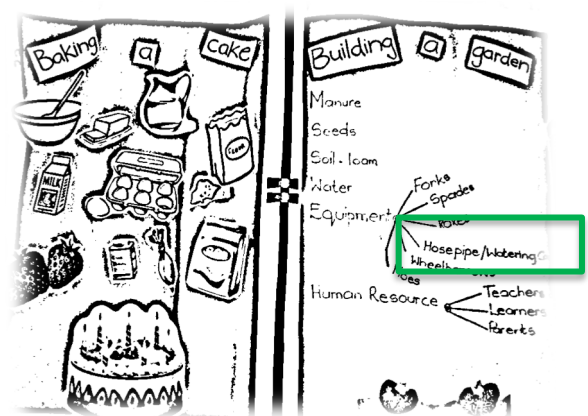 Baking a cake
MILK
Building a garden
Manure
Seeds
Soil - loam
Water
Equipment
Forks
Spades
Rakes
Hosepipe/Watering
Hoes
Human Resource
Teachers
Learners
Parents